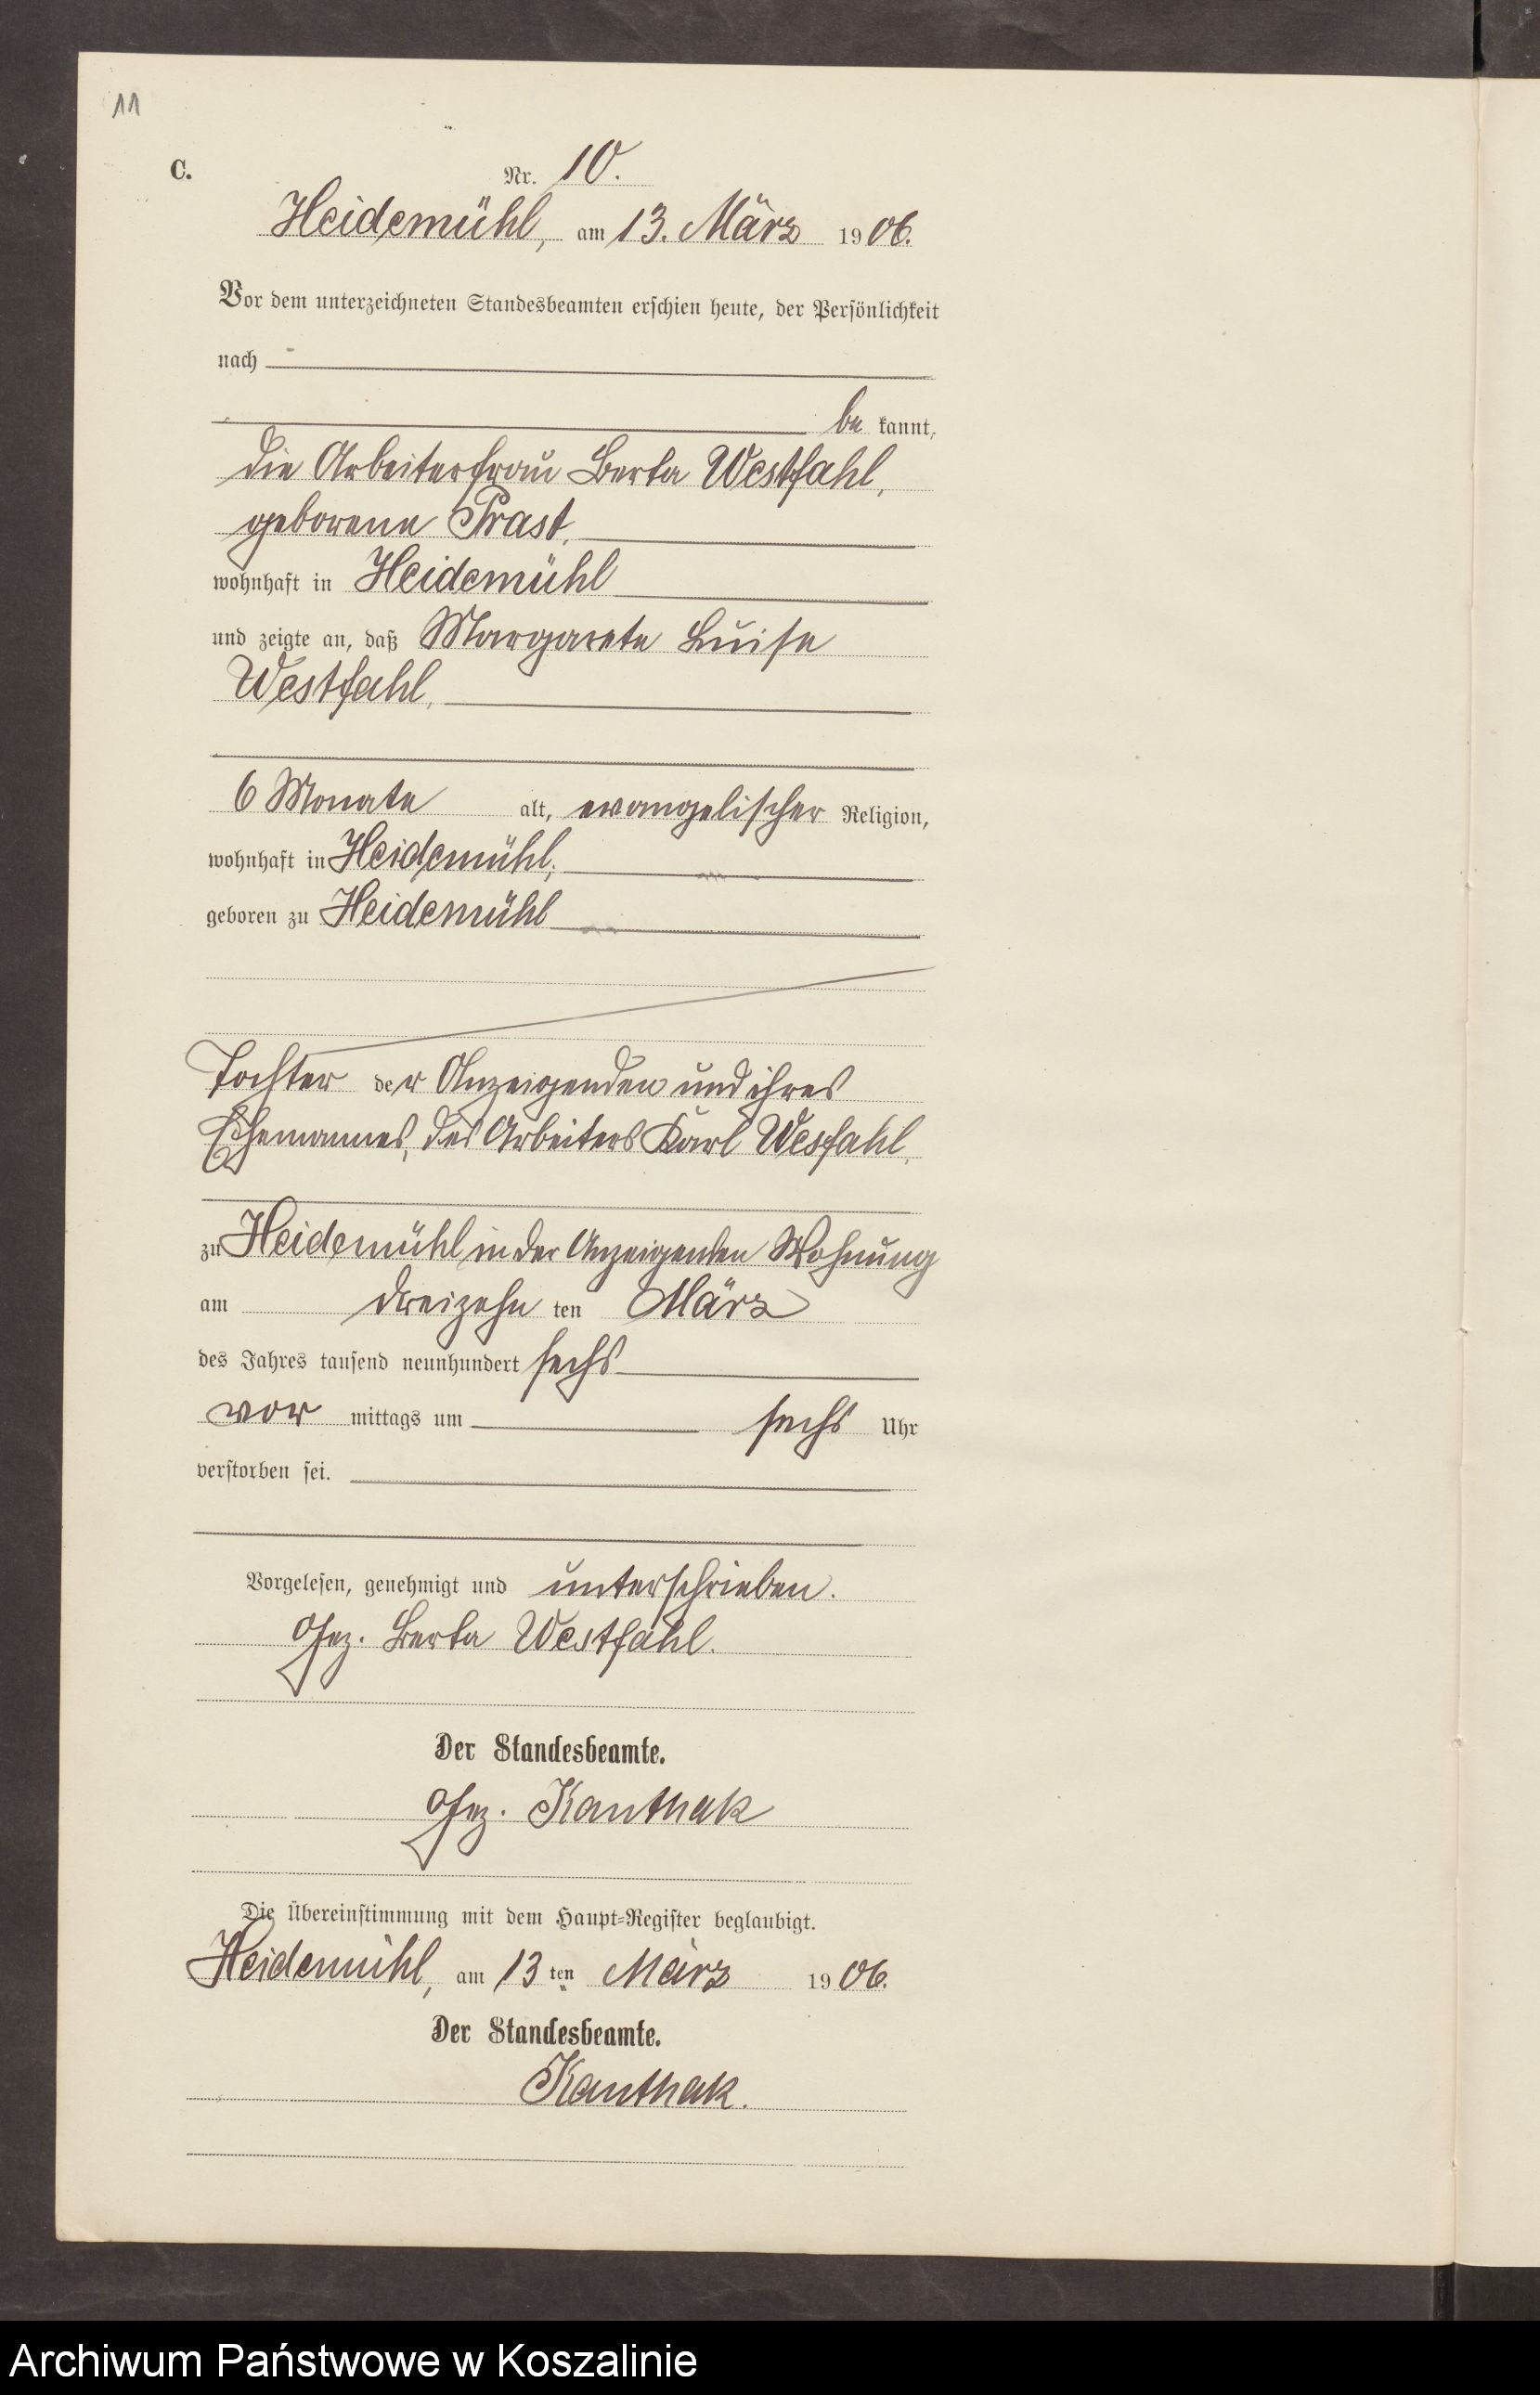 11
C.
Nr. 10.
Heidemühl, am 13. März 1906.
Vor dem unterzeichneten Standesbeamten erschien heute, der Persönlichkeit
nach
be kannt,
die Arbeiterfrau Berta Westfahl,
geborene Prast,
wohnhaft in Heidemühl
und zeigte an, daß Margarete Luise
Westfahl,
6 Monate alt, evangelischer Religion,
wohnhaft in Heidemühl,
geboren zu Heidemühl
Tochter der Anzeigenden und ihres
Ehemannes, des Arbeiters Karl Wesfahl,
zu Heidemühl in der Anzeigenden Wohnung
am dreizehn ten März
des Jahres tausend neunhundert sechs
vor mittags um sechs Uhr
verstorben sei.
Vorgelesen, genehmigt und unterschrieben.
Gez. Berta Westfahl.
Der Standesbeamte.
Gez. Kanthak
Die Übereinstimmung mit dem Haupt-Register beglaubigt.
Heidemühl, am 13 ten März 1906.
Der Standesbeamte.
Kanthak.
Archiwum Państwowe w Koszalinie